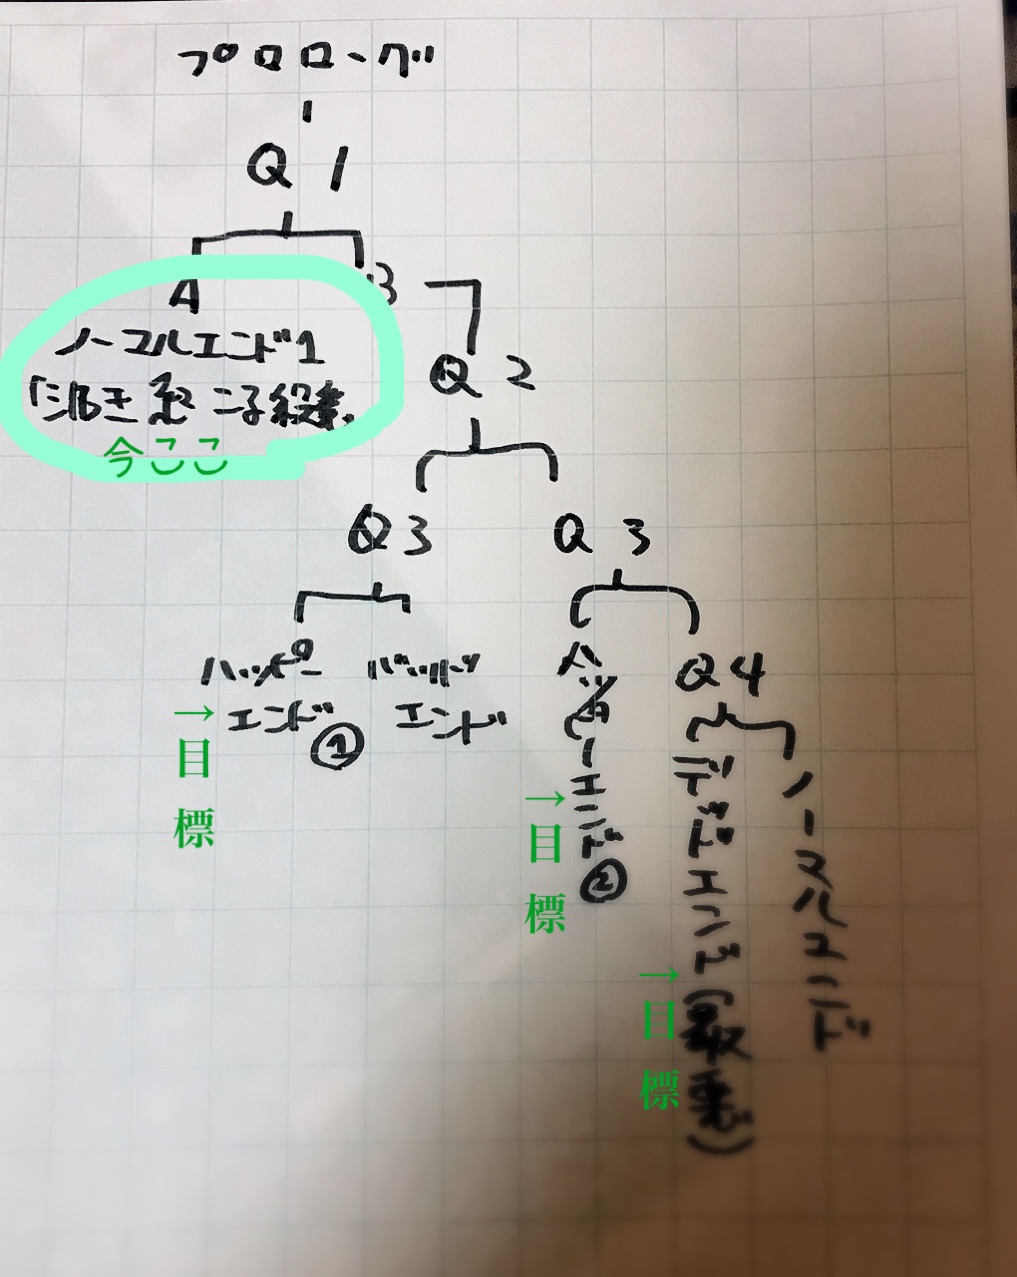 プロローグ
Q 1
A
B
ノーマルエンド1
今ここ
Q 2
Q 3
Q 3
ハッピー
エンド①
→目標
バッド
エンド
ハッピーエンド②
→目標
Q4
デッドエンド(最悪)
→目標
ノーマルエンド